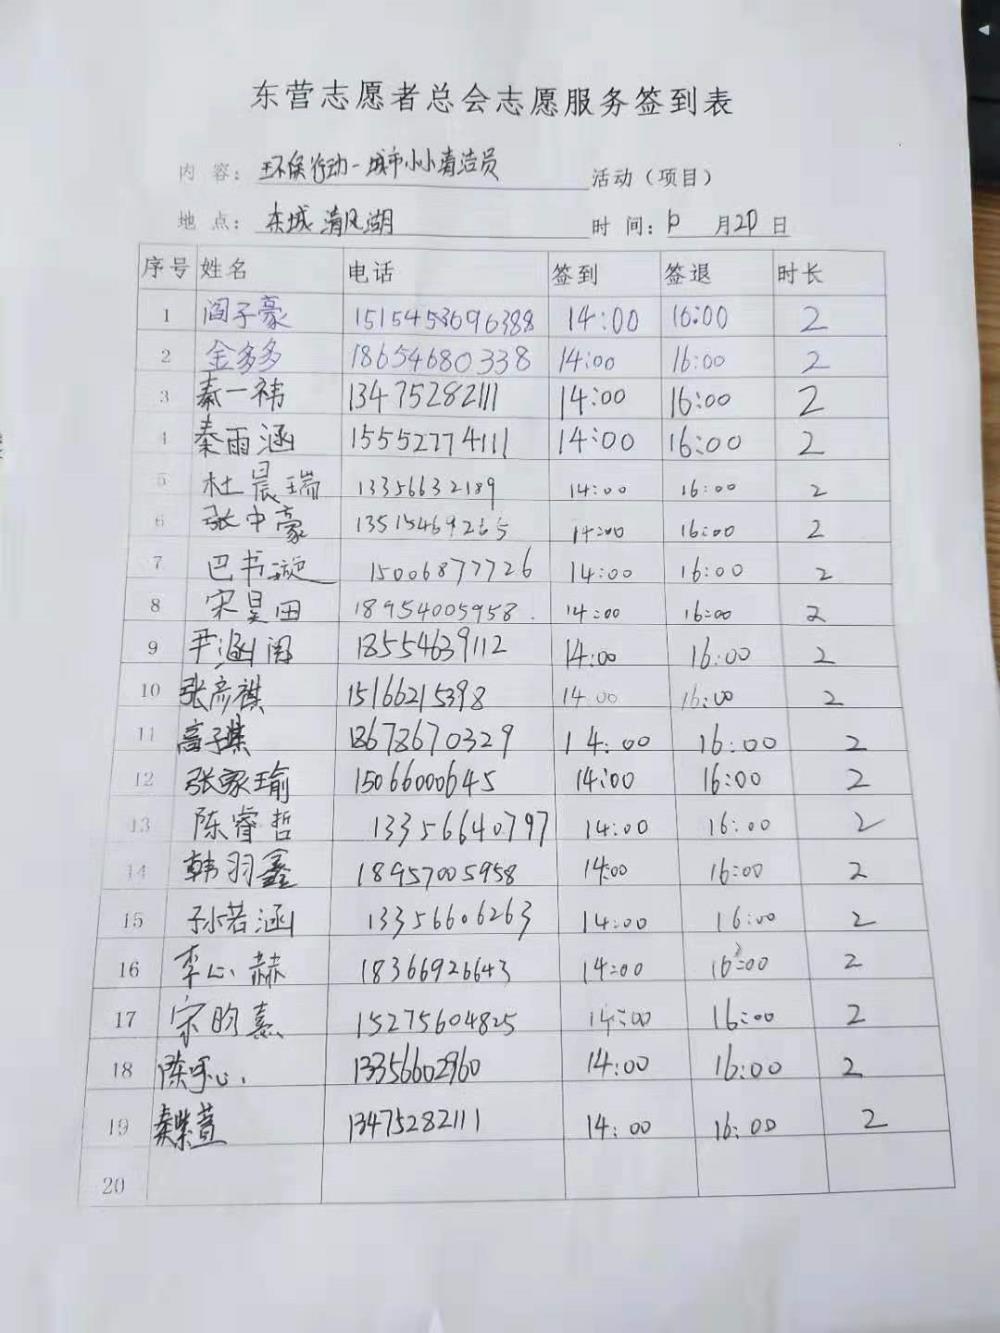 东营志愿者总会志愿服务签到表
内 容： 环保行动-城市小小清洁员 活动（项目）
地 点： 东城清风湖 时 间： 10 月 20 日
序号 姓名 电话 签到 签退 时长
1 阎子豪 1515453696388 14:00 16:00 2
2 金多多 18654680338 14:00 16:00 2
3 秦一祎 13475282111 14:00 16:00 2
4 秦雨涵 15552774111 14:00 16:00 2
5 杜晨瑞 13356632189 14:00 16:00 2
6 张中豪 13515469265 14:00 16:00 2
7 巴书漩 15006877726 14:00 16:00 2
8 宋昊田 18954005958. 14:00 16:00 2
9 尹涵闻 18554639112 14:00 16:00 2
10 张彦祺 15166215398 14:00 16:00 2
11 高子淇 18678670329 14:00 16:00 2
12 张家瑜 15066000645 14:00 16:00 2
13 陈睿哲 13356640797 14:00 16:00 2
14 韩羽鑫 18957005958 14:00 16:00 2
15 孙若涵 13356606263 14:00 16:00 2
16 李心赫 18366926643 14:00 16:00 2
17 宋昀熹 15275604825 14:00 16:00 2
18 13356602960 14:00 16:00 2
19 秦紫萱 13475282111 14:00 16:00 2
20